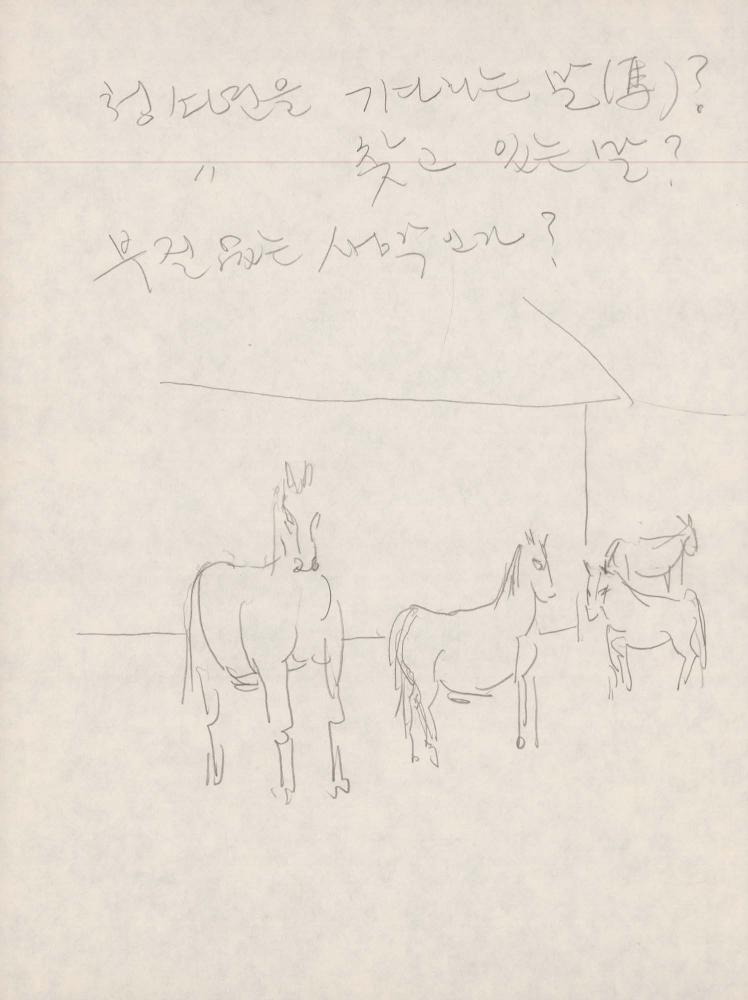 기다리는 말(馬)?
〃 찾고 있는 말?
부질 없는 생각인가?